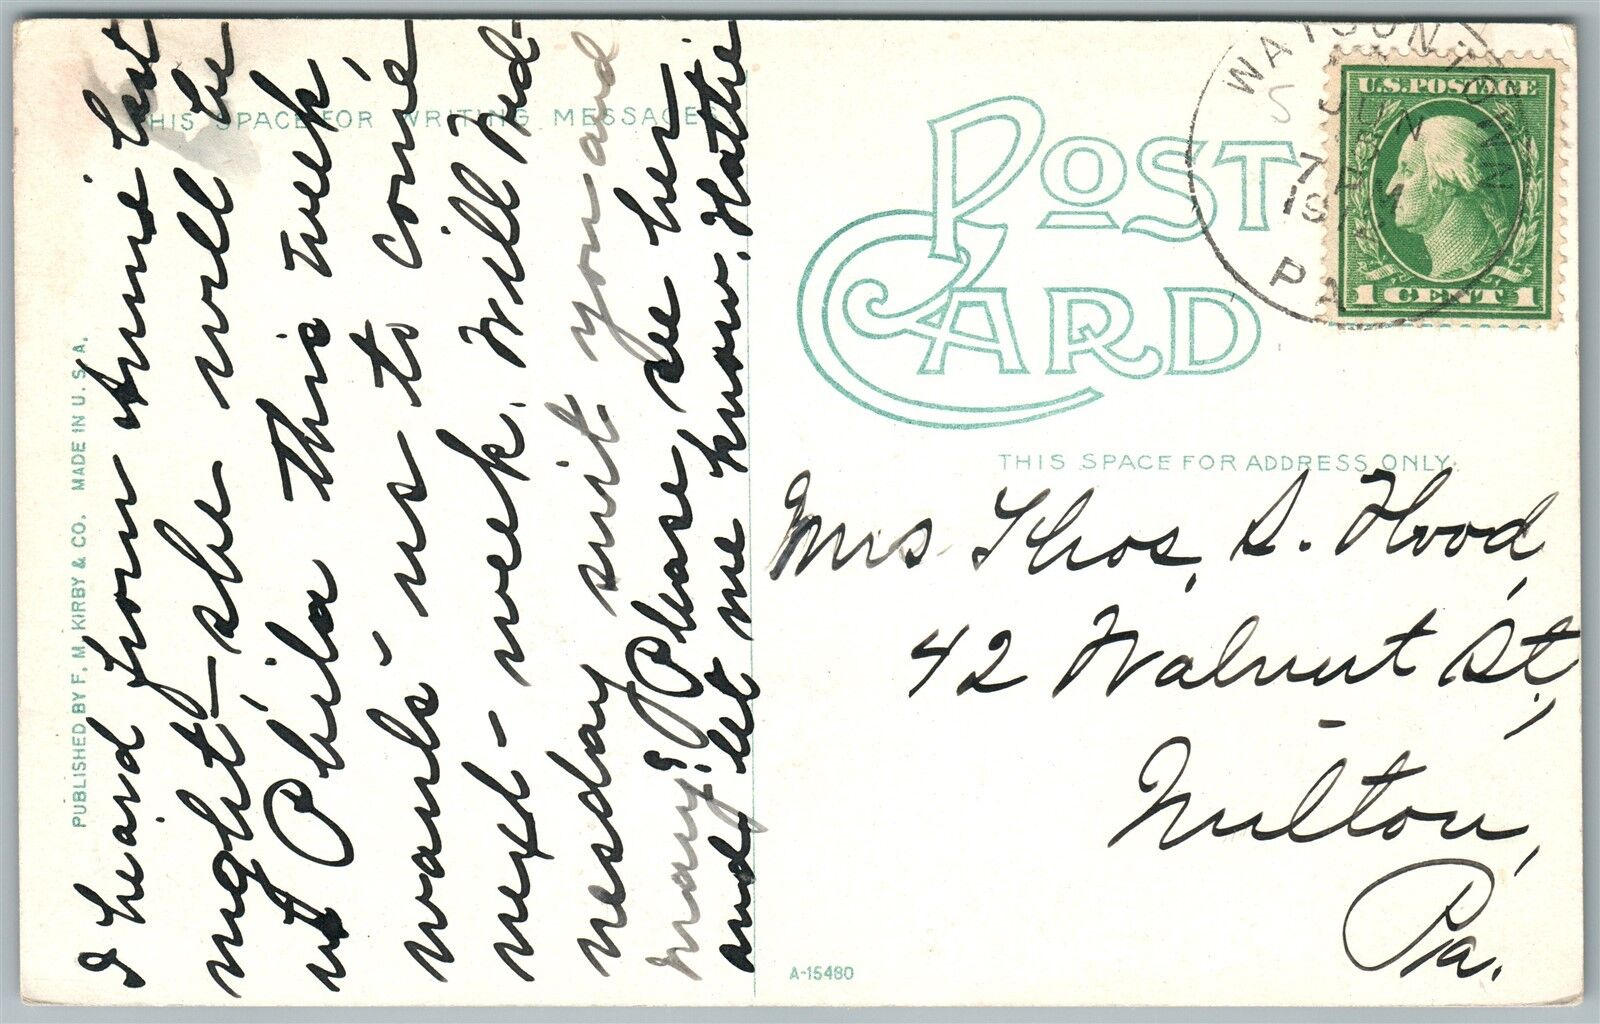 I heard from Annie last
night - she will be
at Phila this week,
wants us to come
next week. Will Wed-
nesday suit you and
mary? Please see her
and let me know. Hattie
THIS SPACE FOR WRITING MESSAGES.
PUBLISHED BY F. M. KIRBY & CO. MADE IN U. S. A.
POST CARD
WATSONTOWN
JUN
7
PA
U.S. POSTAGE
1 CENT 1
THIS SPACE FOR ADDRESS ONLY.
Mrs Thos. S. Hood,
42 Walnut St.,
Milton,
Pa.
A-15480